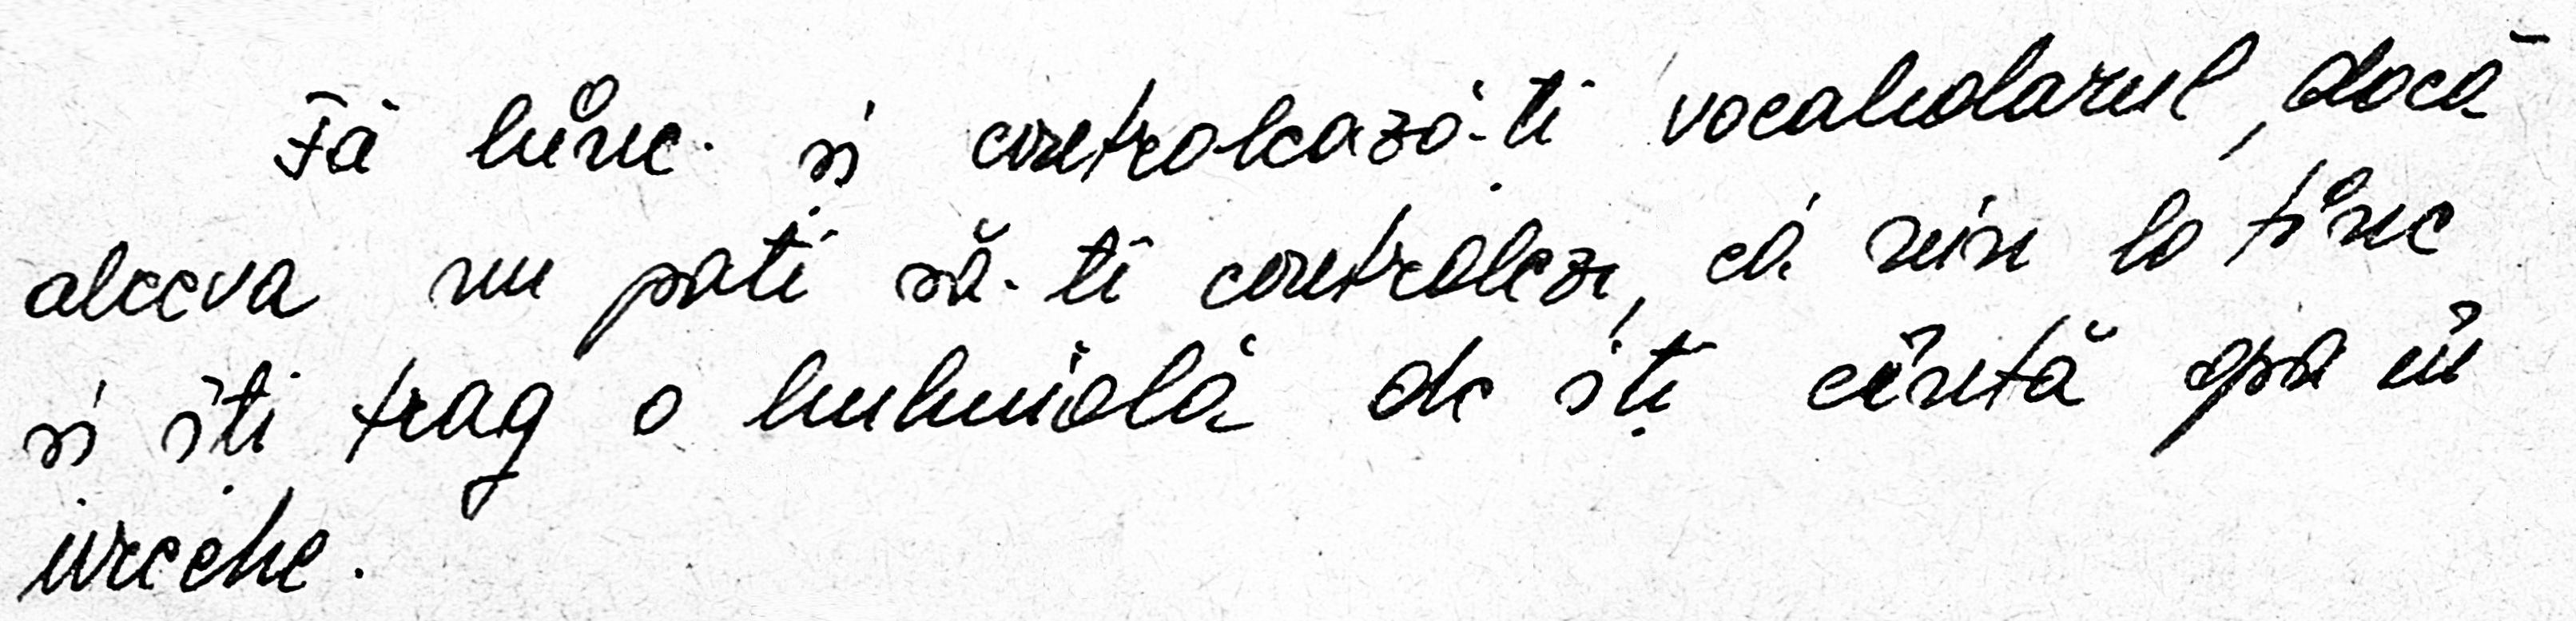 Fă bine și controlează-ți vocabularul, dacă
altceva nu poți să-ți controlezi, că vin la tine
și îți trag o bubuială de îți cântă apa în
ureche.